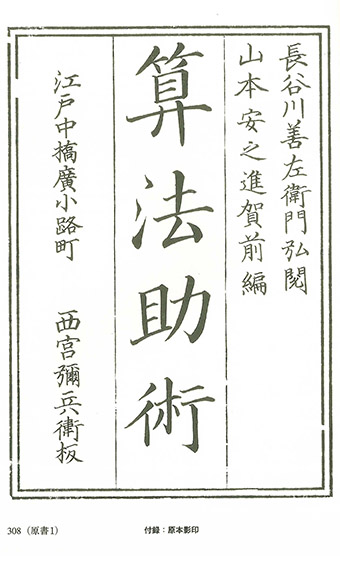 長谷川善左衛門弘閲
山本安之進賀前編
算法助術
江戸中橋廣小路町 西宮彌兵衛板
308（原書1）
付録：原本影印